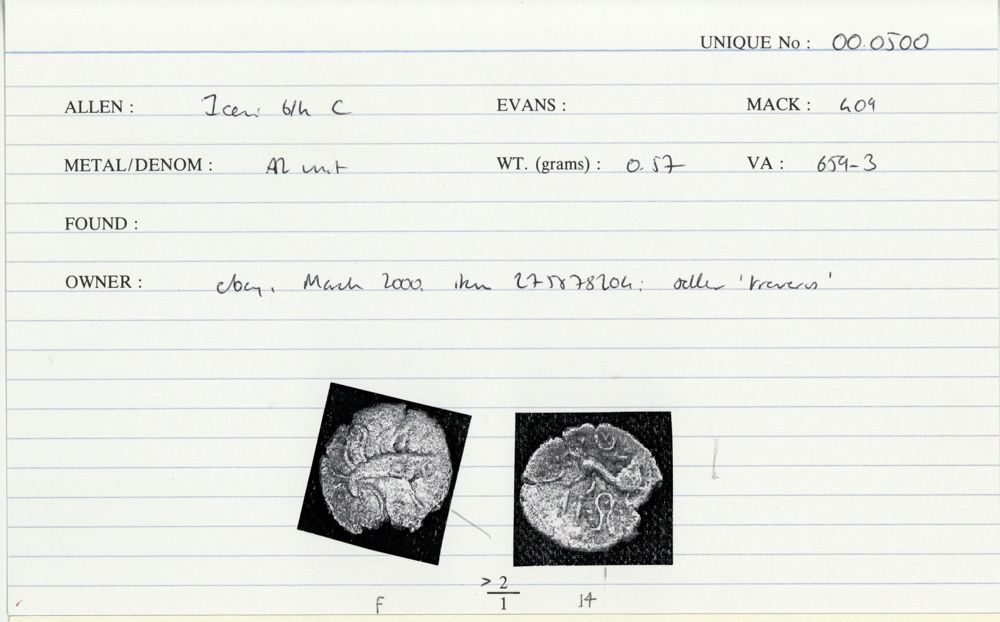 UNIQUE No : 00.0500
ALLEN : Iceni b/h C EVANS : MACK : 409
METAL/DENOM : AR unit WT. (grams) : 0.57 VA : 659-3
FOUND :
OWNER : ebay, March 2000, item 275878204; seller 'treveros'
> 2
F 1 14